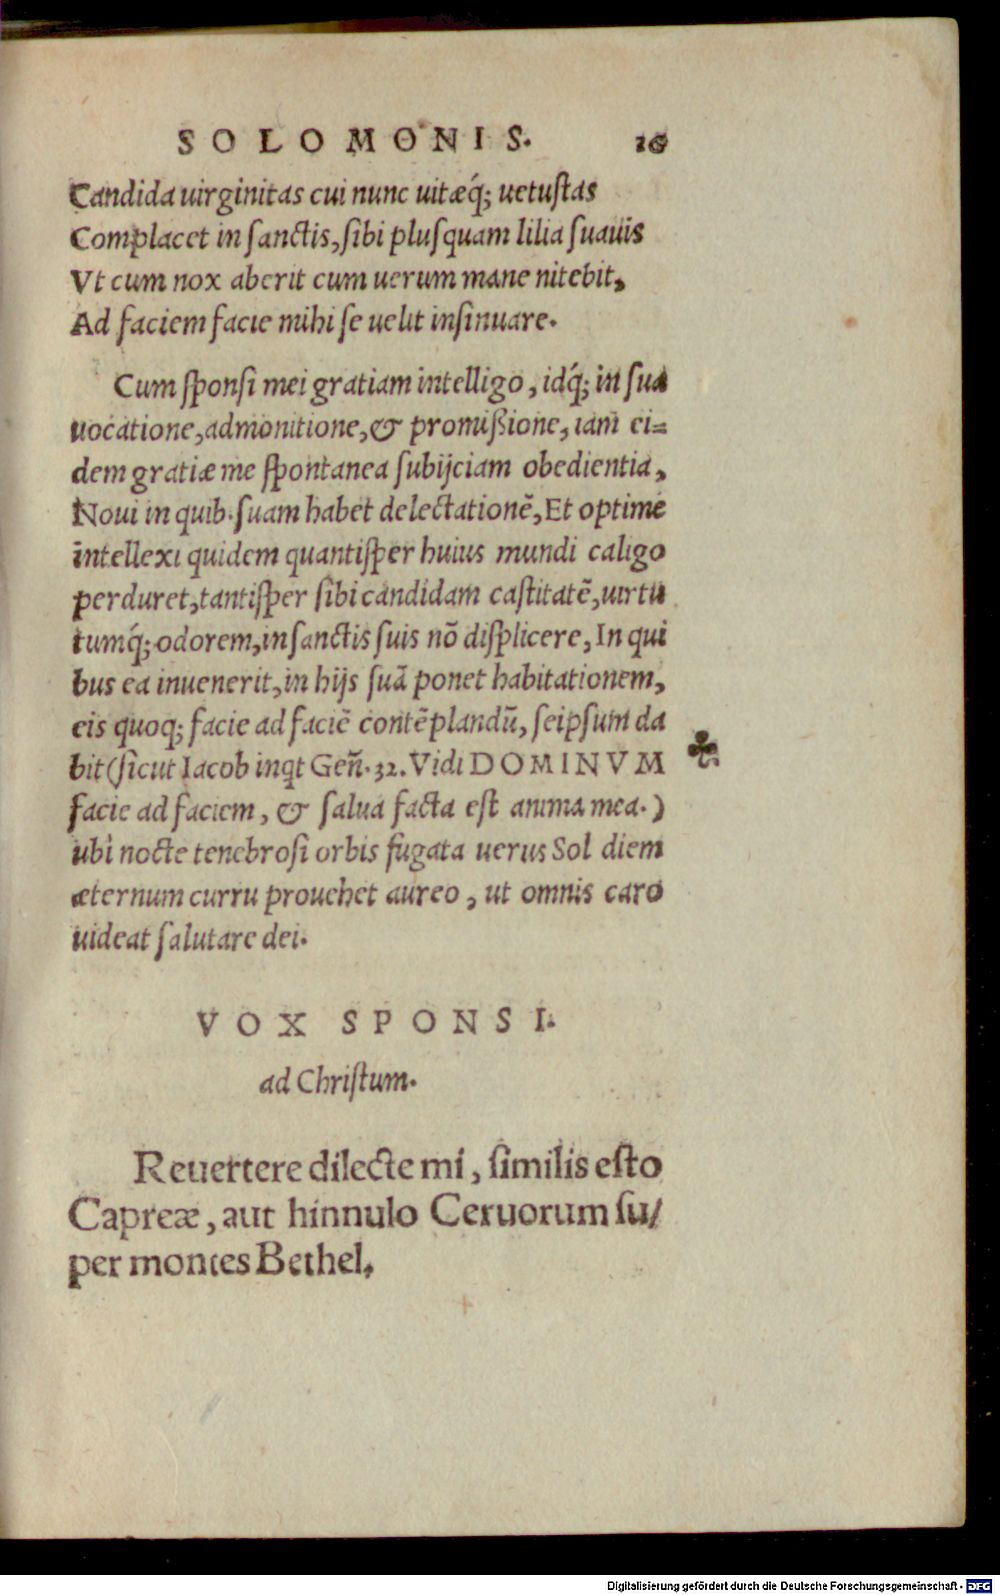 SOLOMONIS. 16
Candida uirginitas cui nunc uitæq́; uetustas
Complacet in sanctis, sibi plusquam lilia suauis
Vt cum nox aberit cum uerum mane nitebit,
Ad faciem facie mihi se uelit insinuare.
Cum sponsi mei gratiam intelligo, idq́; in sua
uocatione, admonitione, & promißione, iam ei=
dem gratiæ me spontanea subijciam obedientia,
Noui in quib. suam habet delectationẽ, Et optime
intellexi quidem quantisper huius mundi caligo
perduret, tantisper sibi candidam castitatẽ, uirtu
tumq́; odorem, in sanctis suis nõ displicere, In qui
bus ea inuenerit, in hijs suã ponet habitationem,
eis quoq; facie ad faciẽ contẽplandũ, seipsum da
bit (sicut Iacob inqt Geñ. 32. Vidi DOMINVM
facie ad faciem, & salua facta est anima mea.)
ubi nocte tenebrosi orbis fugata uerus Sol diem
æternum curru prouehet aureo, ut omnis caro
uideat salutare dei.
VOX SPONSI.
ad Christum.
Reuertere dilecte mi, similis esto
Capreæ, aut hinnulo Ceruorum su/
per montes Bethel.
Digitalisierung gefördert durch die Deutsche Forschungsgemeinschaft - DFG